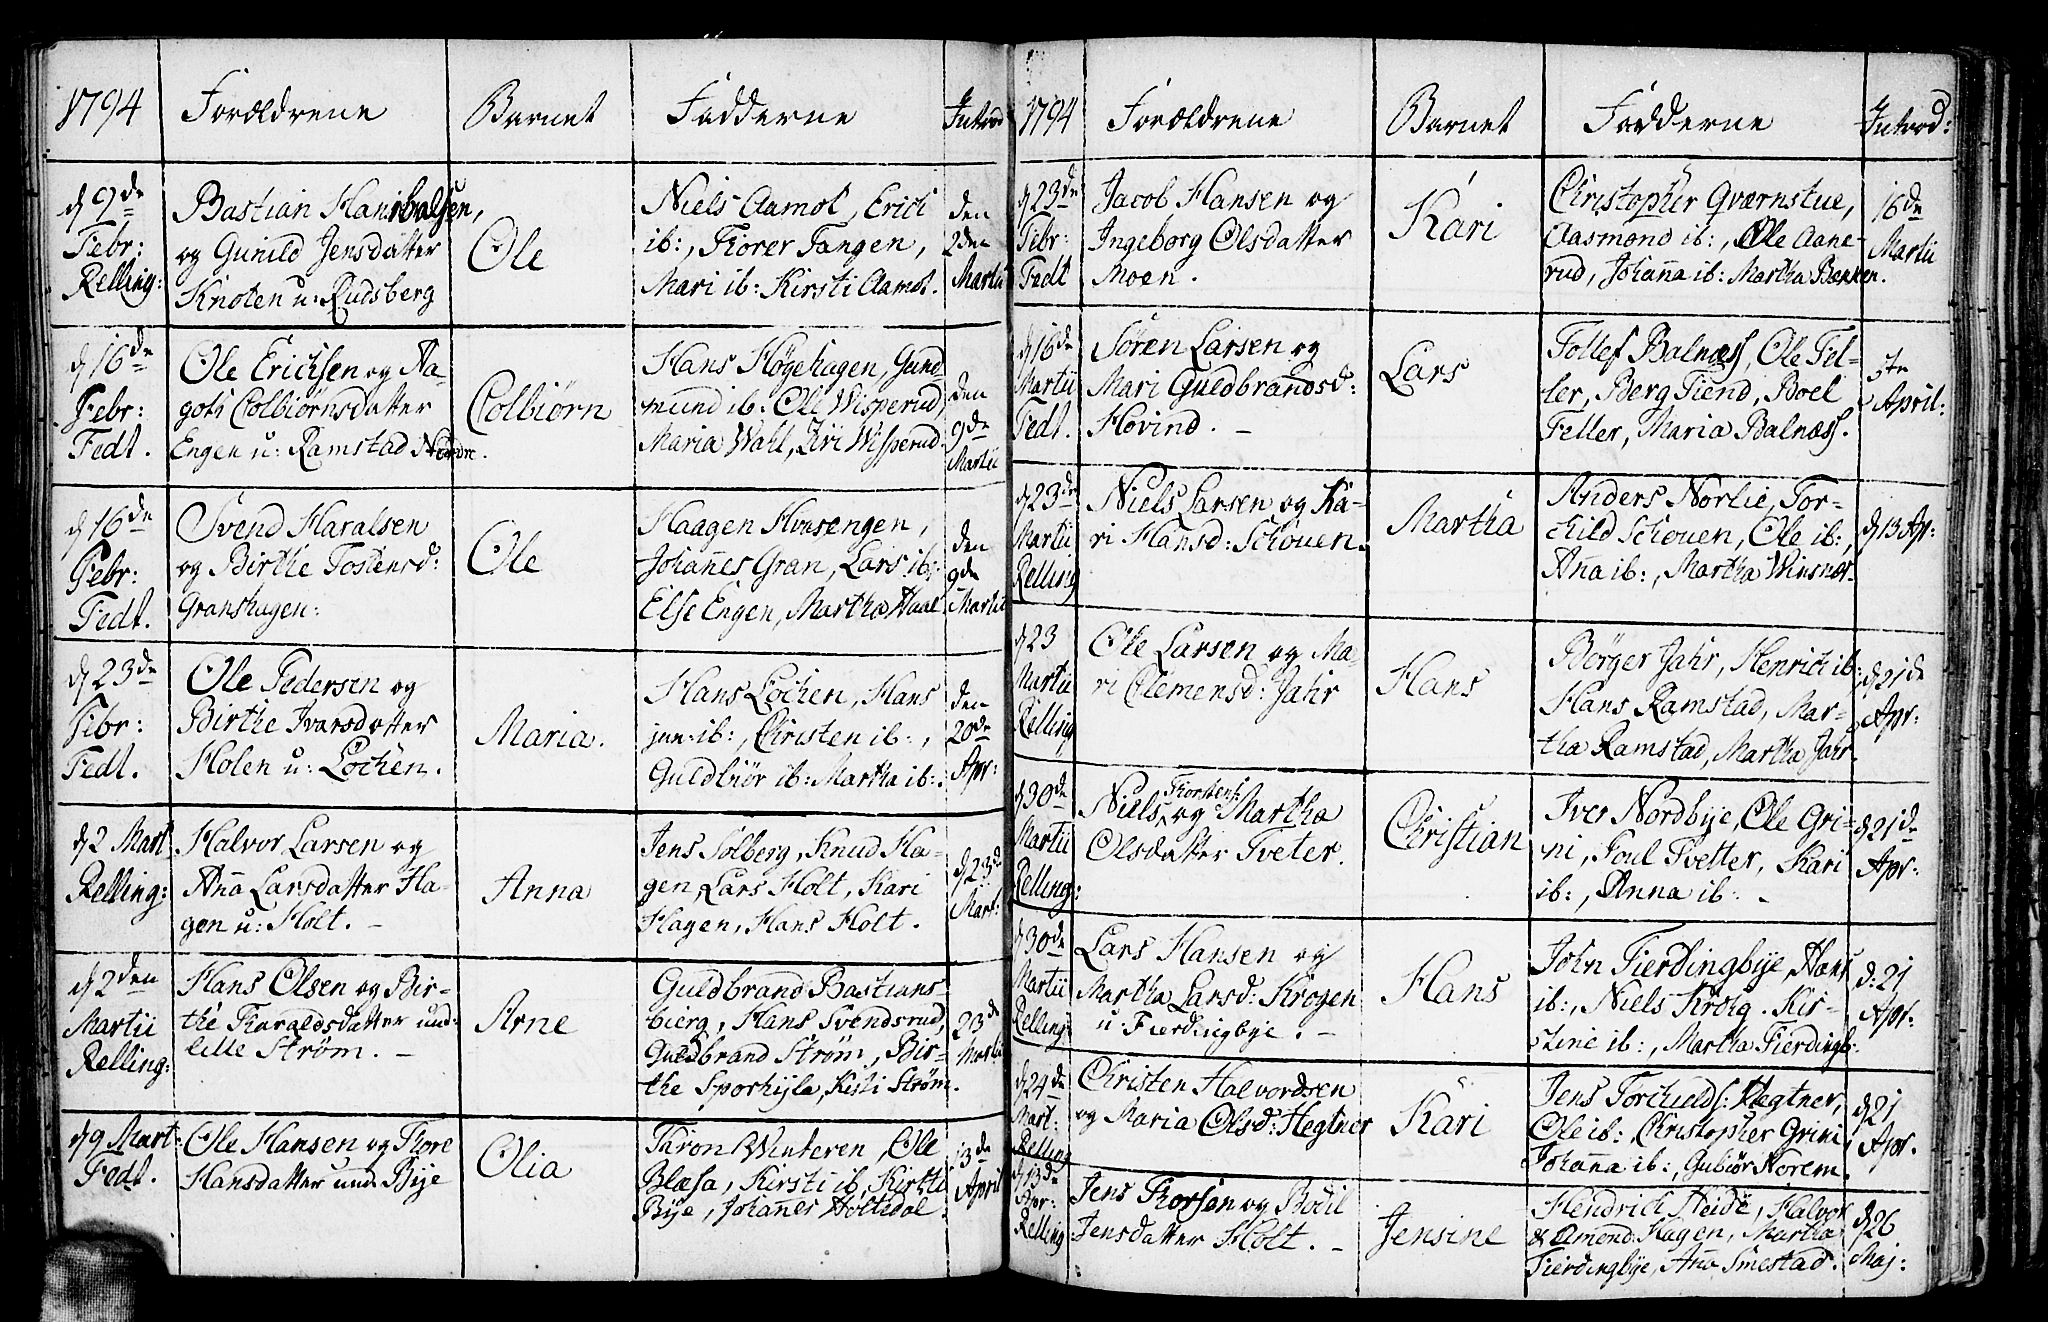 1794 Forældrene Barnet Fadderne Introd
d 9de Febr: Relling:
Bastian Hansbalsen,
og Gunild Jensdatter
Knoten u: Rudsberg
Ole
Niels Aamot, Erich
ib:, Thorer Tangen,
Mari ib: Kirsti Aamot.
den 2den Martii
d 16de Febr: Fedt.
Ole Erichsen og Aa-
goti Colbiørnsdatter
Engen u: Ramstad Nordre.
Colbiørn
Hans Høgehagen, Gund
mund ib: Ole Wisperud,
Maria Wahl, Ziri Wisperud.
den 9de Martii
d 16de Febr: Fedt.
Svend Haralsen
og Birthe Tostensd:
Granshagen:
Ole
Haagen Hvnsengen,
Johannes Gran, Lars ib:,
Else Engen, Martha Haal
den 9de Martii
d 23de Febr: Fedt.
Ole Pedersen og
Birthe Ivarsdatter
Holen u: Lochen.
Maria.
Hans Lochen, Hans
jun: ib:, Christen ib:,
Guldbiør ib: Martha ib:
den 20de Apr:
d 2 Mart Relling:
Halvor Larsen og
Anna Larsdatter Ha-
gen u: Holt. -
Anna
Jens Solberg, Knud Ha-
gen, Lars Holt, Kari
Hagen, Hans Holt.
d 23de Mart:
d 2den Martii Relling:
Hans Olsen og Bir-
the Haraldsdatter und:
lille Strøm. -
Arne
Guldbrand Bastians-
bierg, Hans Svendsrud,
Guldbrand Strøm, Bir-
the Sporhyla, Kisti Strøm.
23de Martii
d 9 Mart: Fedt.
Ole Hansen og Thore
Hansdatter und: Bye
Olia
Taron Winteren, Ole
Blæsa, Kirsti ib, Kirsti
Bye, Johannes Holtedal.
13de April
1794 Forældrene Barnet Fadderne Introd:
d 23de Febr: Fedt
Jacob Hansen og
Ingeborg Olsdatter
Moen.
Kari
Christopher Qværnstue,
Aasmond ib:, Ole Aane-
rud, Johanna ib: Martha Bakken.
16de Martii
d 16de Martii Fedt.
Søren Larsen og
Mari Guldbrandsd:
Hovind. -
Lars
Tollef Balness, Ole Fel-
ler, Berg Fiend, Boel
Feller, Maria Balness.
5te April:
d 23de Martii Relling
Niels Larsen og Ka-
ri Hansd: Schouen.
Martha
Anders Norlie, Tor-
child Schouen, Ole ib:,
Anna ib:, Martha Winsnæs.
d 13 Apr:
d 23 Martii Relling
Ole Larsen og Ma-
ri Clemensd: Jahr
Hans
Børger Jahr, Henrich ib:
Hans Ramstad, Mar-
tha Ramstad, Martha Jahr.
d 21de Apr:
d 30de Martii Relling:
Niels Thorstens: og Martha
Olsdatter Tveter.
Christian
Iver Nordbye, Ole Gri-
ni, Poul Tvetter, Kari
ib:, Anna ib: -
d 21de Apr:
d 30de Martii Relling
Lars Hansen og
Martha Larsd: Krogen
u: Fierdingbye. -
Hans
John Fierdingbye, Hans
ib:, Niels Krohg. Kir-
stine ib:, Martha Fierdingb:
d: 21 Apr:
d 24de Mart: Relling
Christen Halvordsen
og Maria Olsd: Hegtner
Kari
Jens Torchields: Hegtner,
Ole ib:, Christopher Grini,
Johanna ib:, Gubiør Norem.
d 21 Apr.
d 13de Apr: Relling
Jens Thorsen og Bodil
Jensdatter Holt. -
Jensine
Hendrich Heide, Halvor
& Amond Hagen, Martha
Fierdingbye, Anna Smestad.
d 26 Maj: